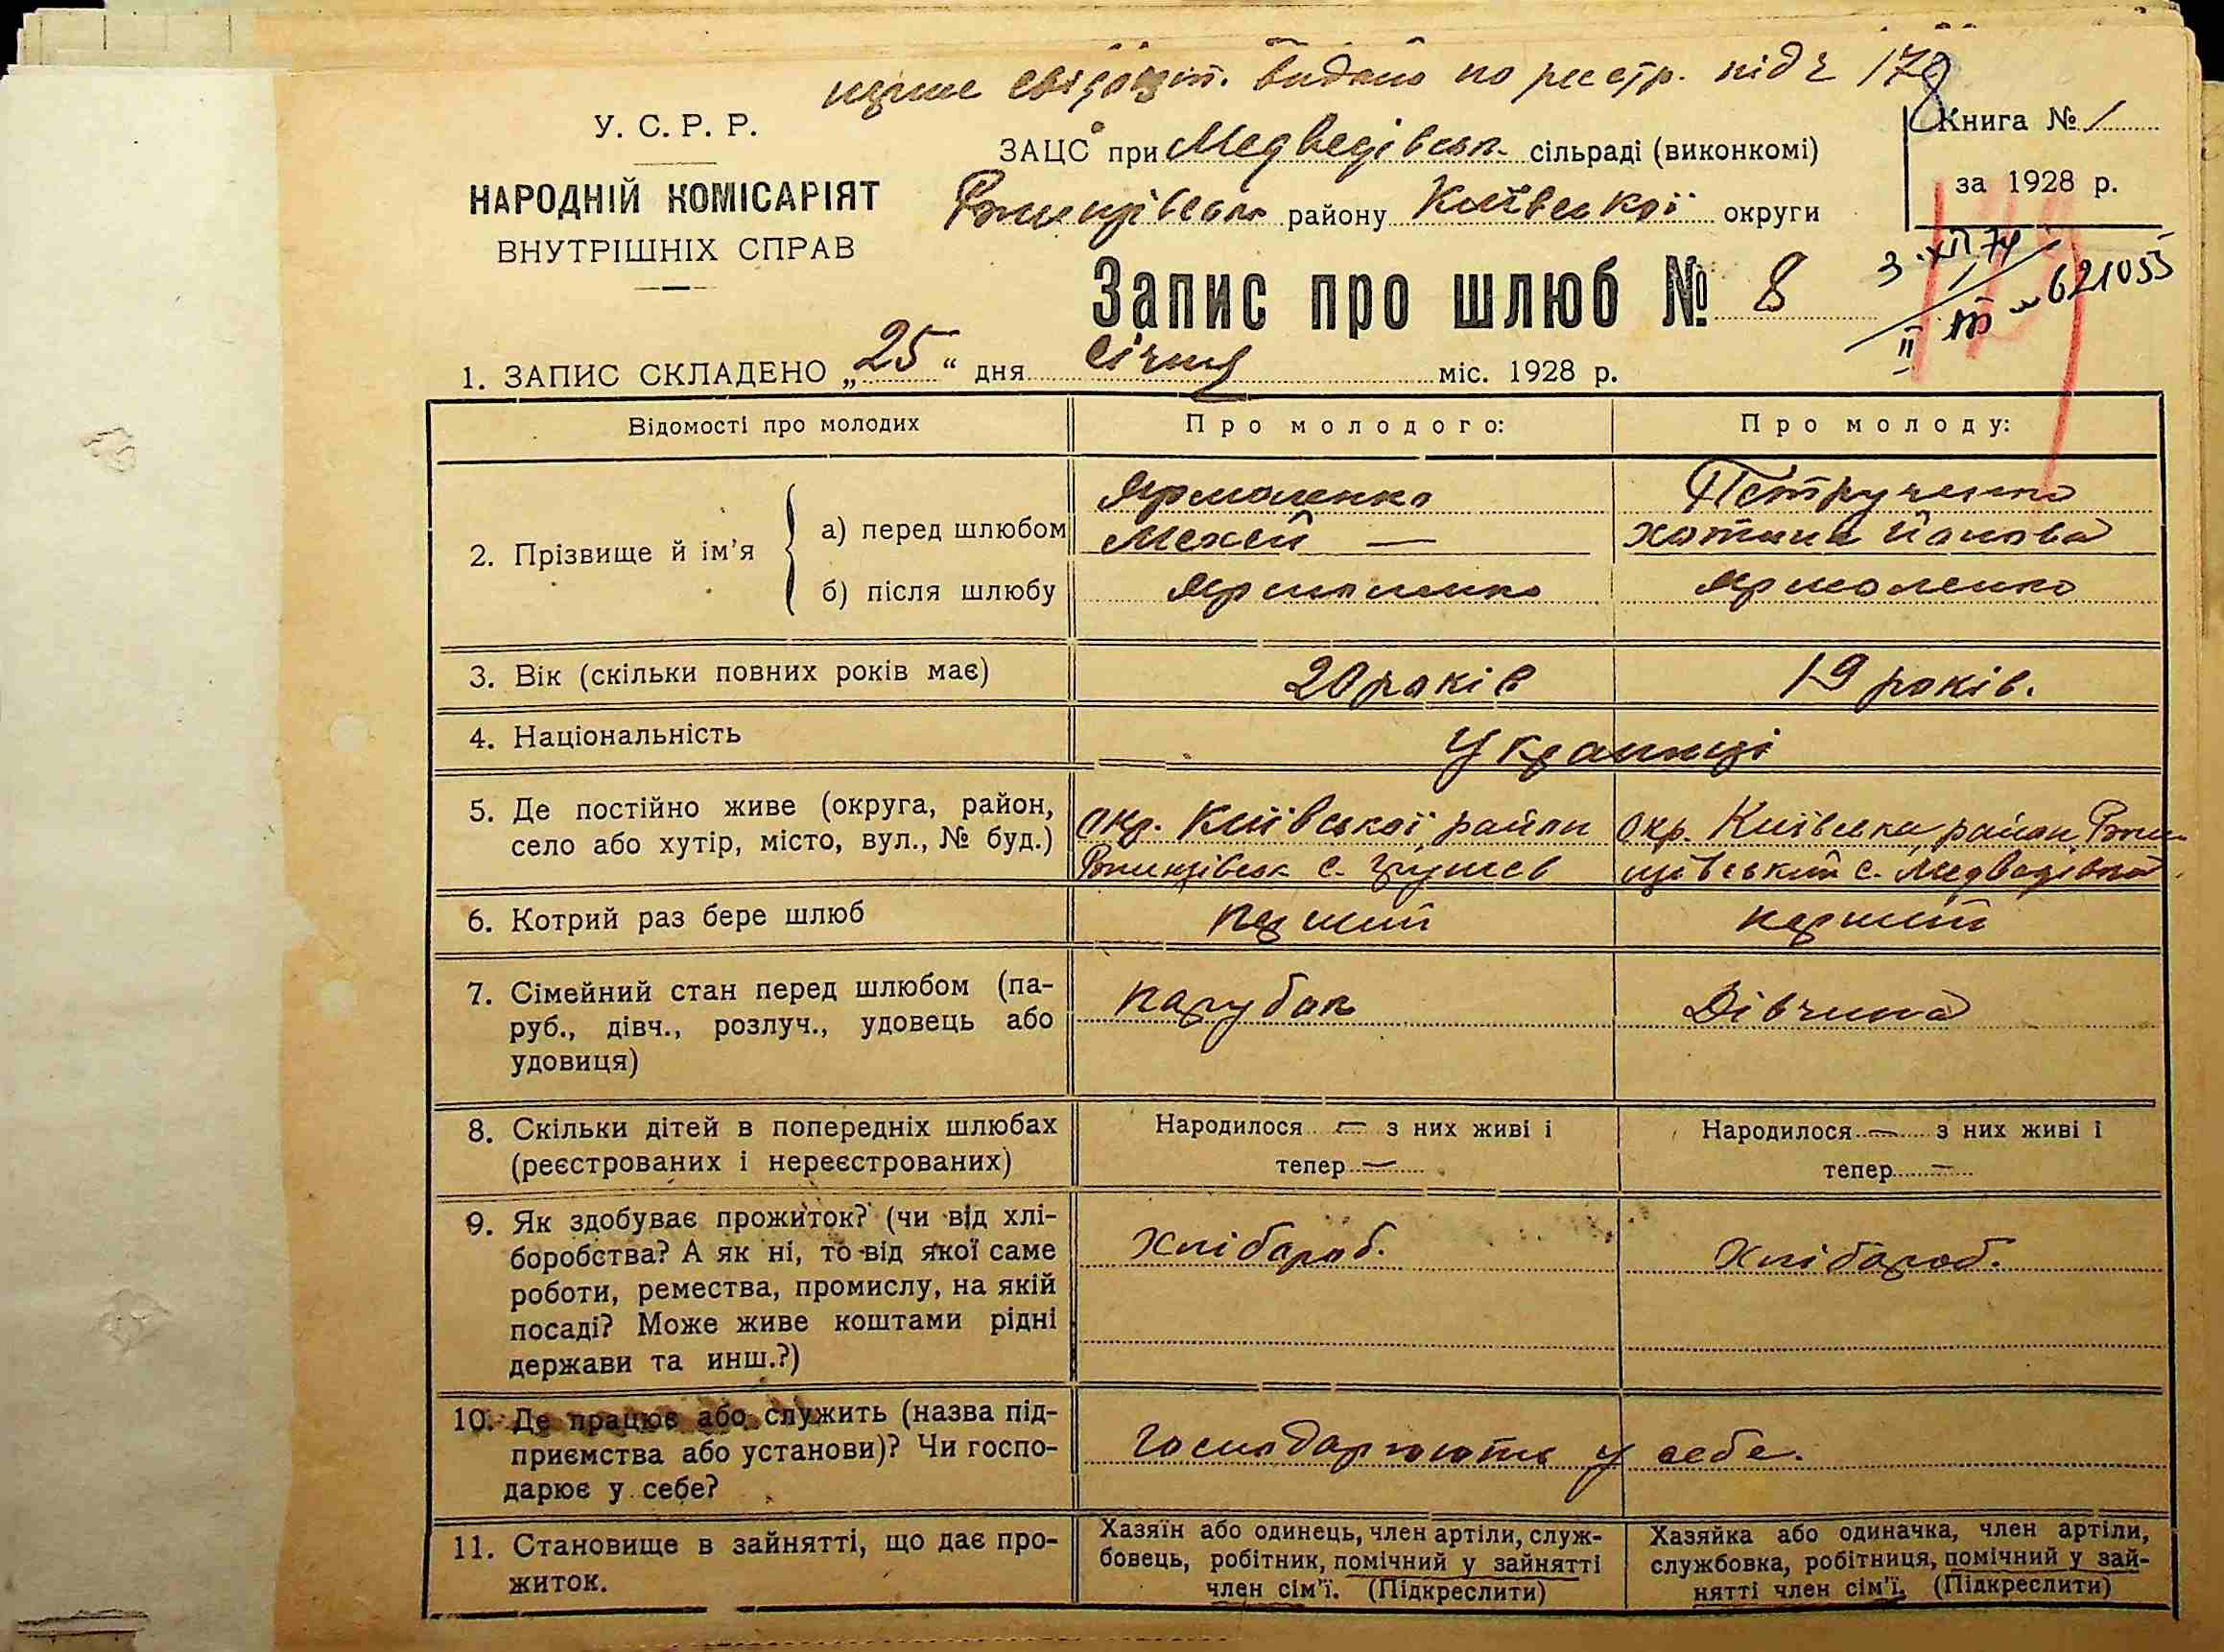 перше свідоцт. видано по реєстр. під № 178
У. С. Р. Р.
НАРОДНІЙ КОМІСАРІЯТ
ВНУТРІШНІХ СПРАВ
ЗАЦС при Медведівськ. сільраді (виконкомі)
Ржищівськ району Київської округи
Книга № 1
за 1928 р.
3.XII 74
621055
Запис про шлюб № 8
1. ЗАПИС СКЛАДЕНО „25“ дня січня міс. 1928 р.
Відомості про молодих
Про молодого:
Про молоду:
2. Прізвище й ім’я
а) перед шлюбом
Ярмоленко
Мехей —
Петрученко
Хотина
б) після шлюбу
Ярмоленко
Ярмоленко
3. Вік (скільки повних років має)
20 років
19 років.
4. Національність
Українці
5. Де постійно живе (округа, район,
село або хутір, місто, вул., № буд.)
Окр. Київської район
Ржищівськ с. Грушев
Окр. Київська район Ржи-
щівський с. Медведівка
6. Котрий раз бере шлюб
перший
перший
7. Сімейний стан перед шлюбом (па-
руб., дівч., розлуч., удовець або
удовиця)
парубок
Дівчина
8. Скільки дітей в попередніх шлюбах
(реєстрованих і нереєстрованих)
Народилося — з них живі і
тепер —
Народилося — з них живі і
тепер —
9. Як здобуває прожиток? (чи від хлі-
боробства? А як ні, то від якої саме
роботи, ремества, промислу, на якій
посаді? Може живе коштами рідні
держави та инш.?)
Хлібороб.
Хлібороб.
10. Де працює або служить (назва під-
приємства або установи)? Чи госпо-
дарює у себе?
господарюють у себе.
11. Становище в зайнятті, що дає про-
житок.
Хазяїн або одинець, член артіли, служ-
бовець, робітник, помічний у зайнятті
член сім’ї. (Підкреслити)
Хазяйка або одиначка, член артіли,
службовка, робітниця, помічний у зай-
нятті член сім’ї. (Підкреслити)